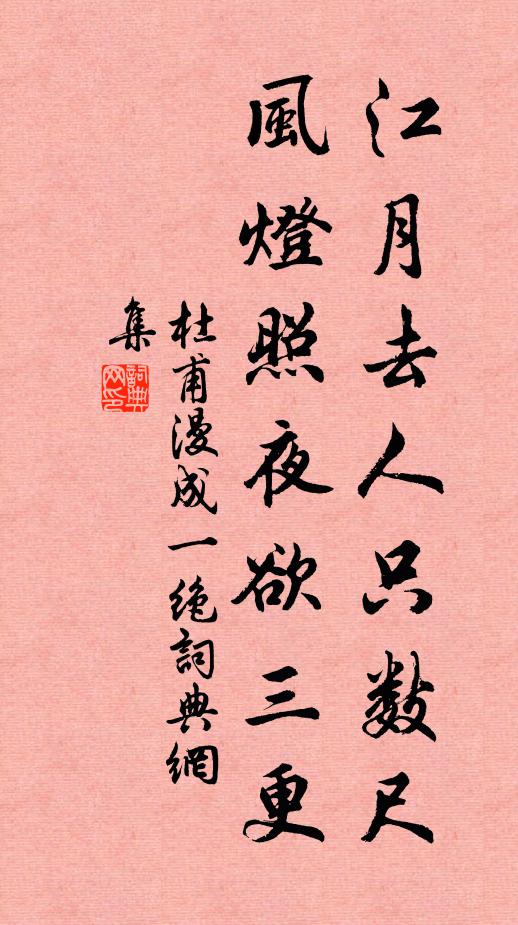 江月去人只數尺
風燈照夜欲三更
杜甫漫成一絶詞典網
集
詞典网印